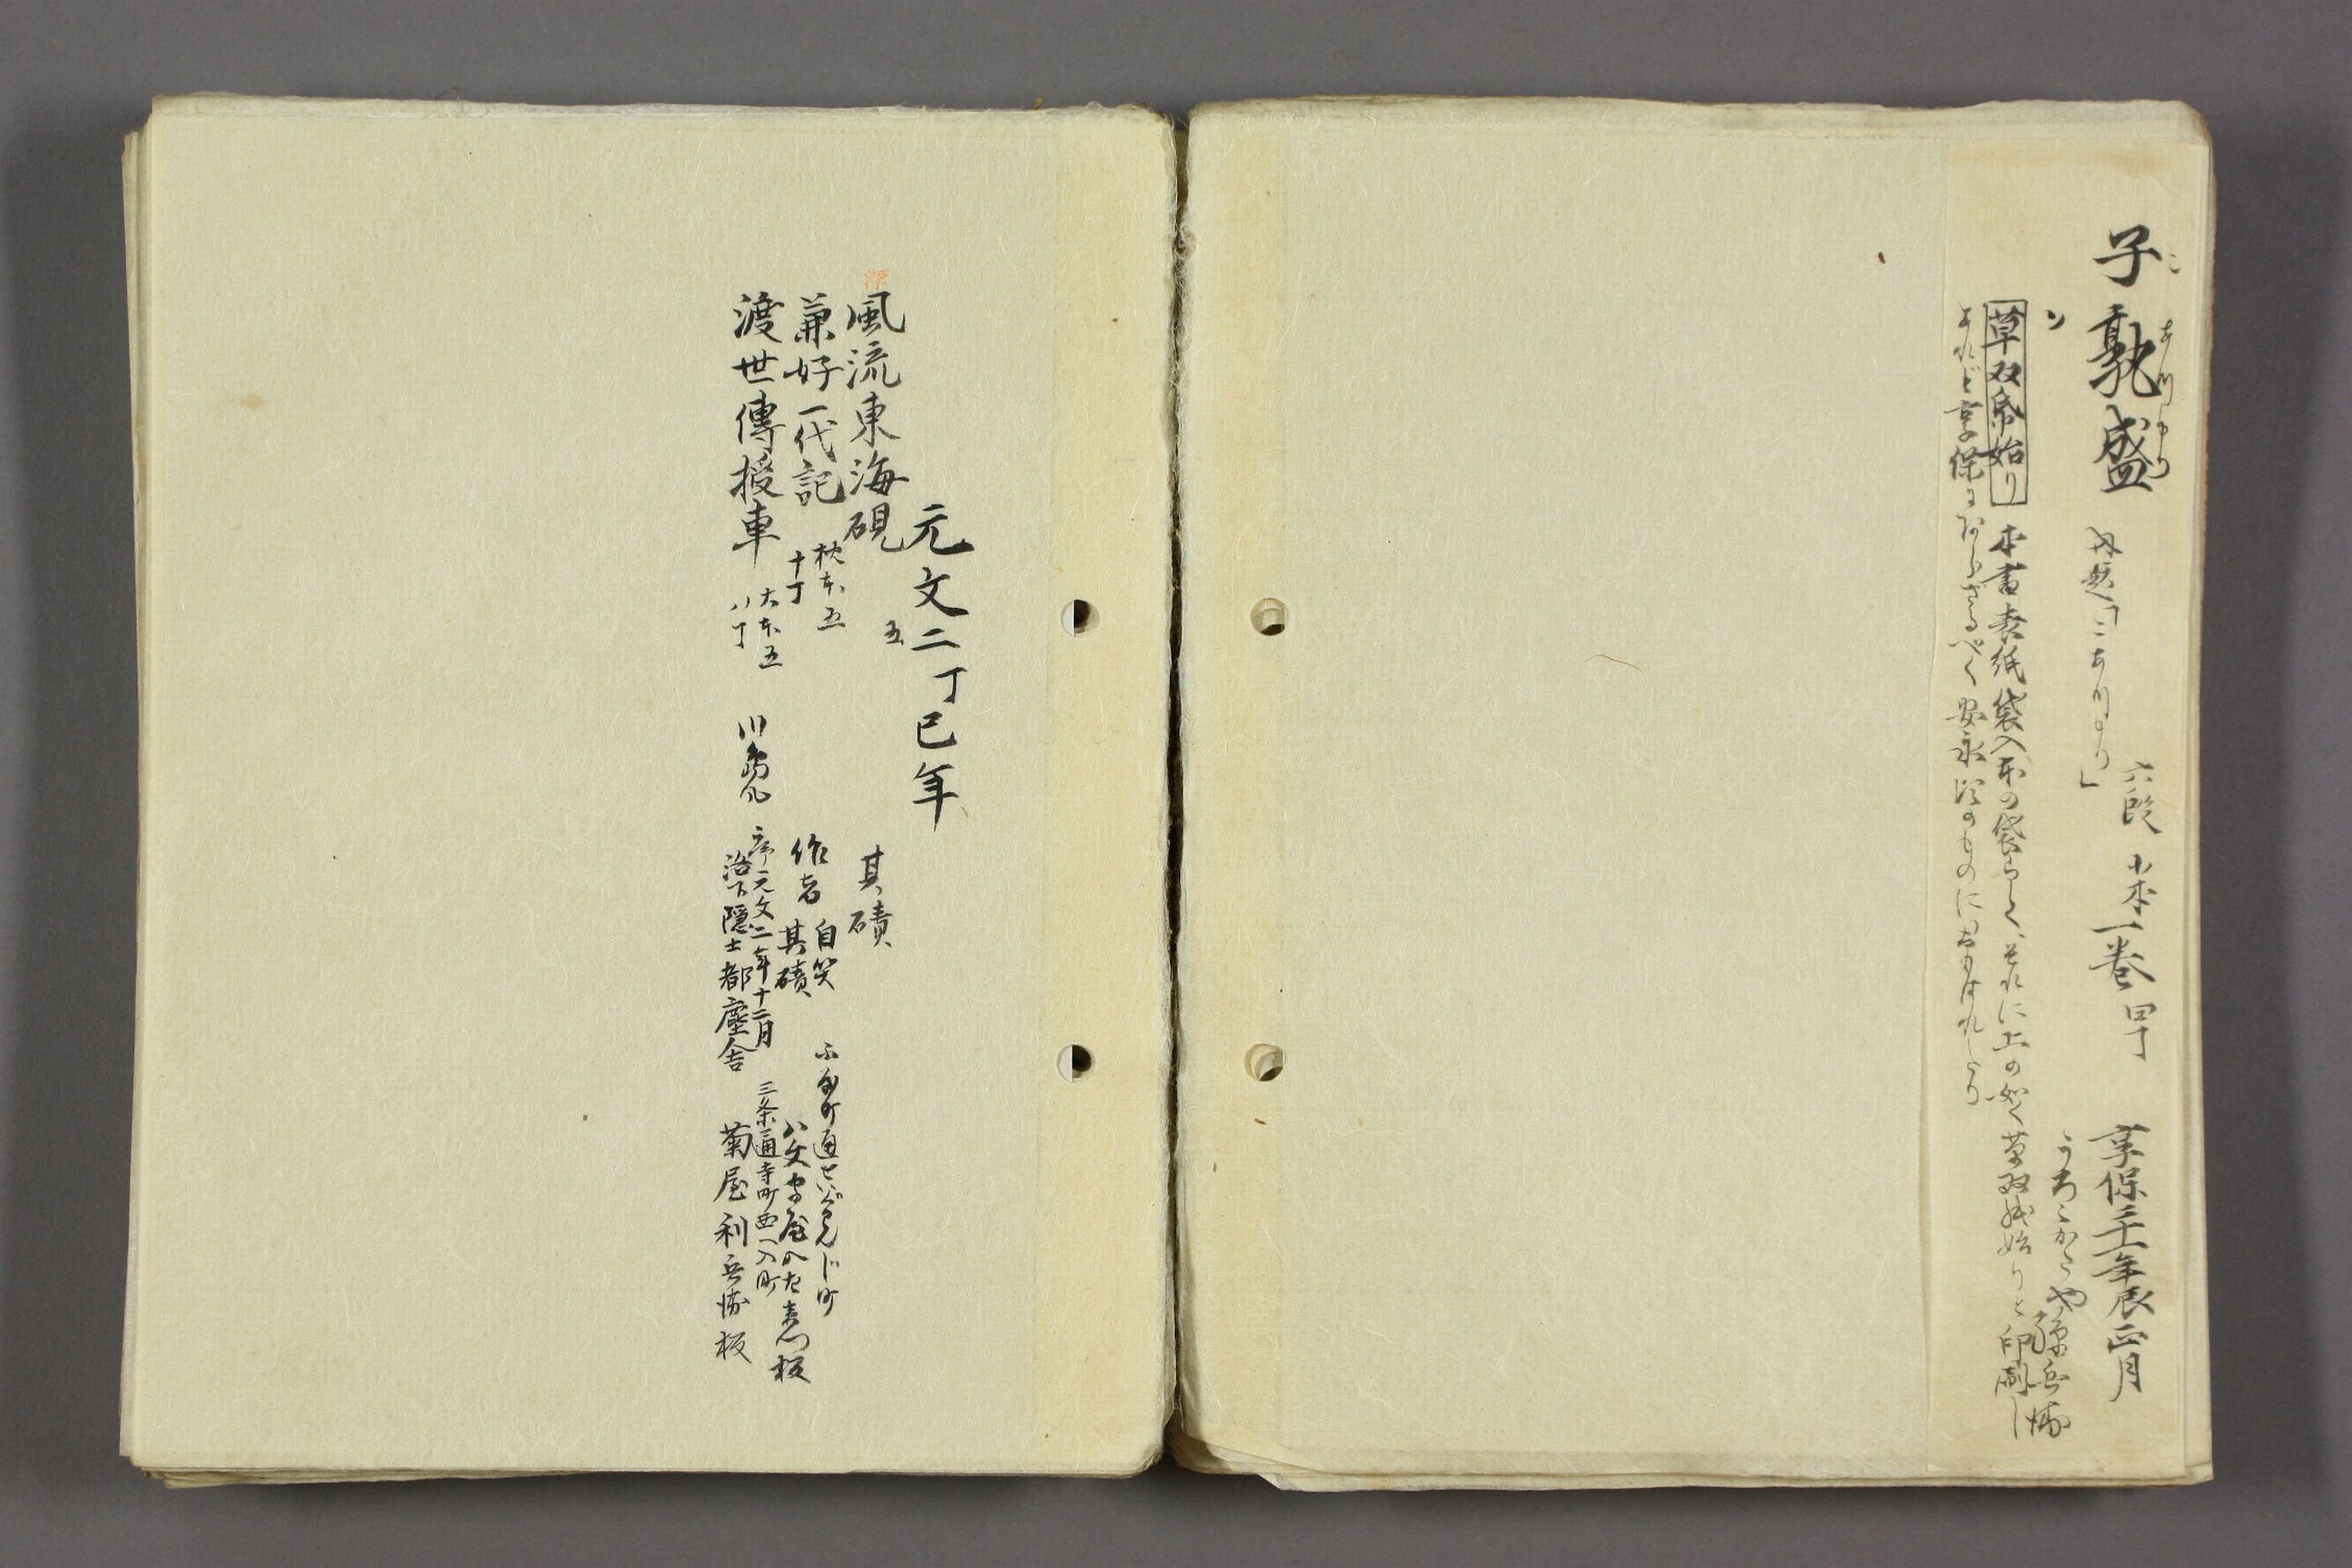 子敦盛 六段 小本一巻 享保二十一年辰正月
こ あつもり
内題「こあつもり」
うろこかたや孫兵衛
草双帋始り 本書表紙袋入本の袋らしく、それに上の如く草双紙始りと印刷し
あれど享保にあらざるべく安永頃のものにおもはれたり
元文二丁巳年
風流東海硯 五 其磧
兼好一代記 枕本五 十丁 作者 自笑 其磧
ふや町通せいぐはんじ町
八文字屋八左衛門板
渡世傳授車 大本五 八丁 川島几
序元文二年十二月
洛下隠士都塵舎
三条通寺町西へ入町
菊屋利兵衛板